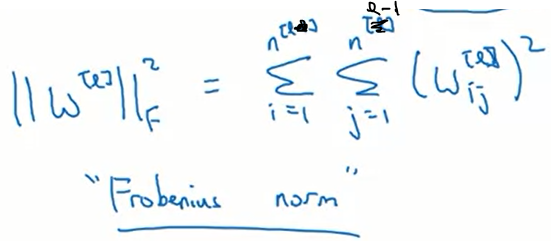 ||w^{[l]}||_F^2 = \sum_{i=1}^{n^{[l]}} \sum_{j=1}^{n^{[l-1]}} (w_{ij}^{[l]})^2
"Frobenius norm"